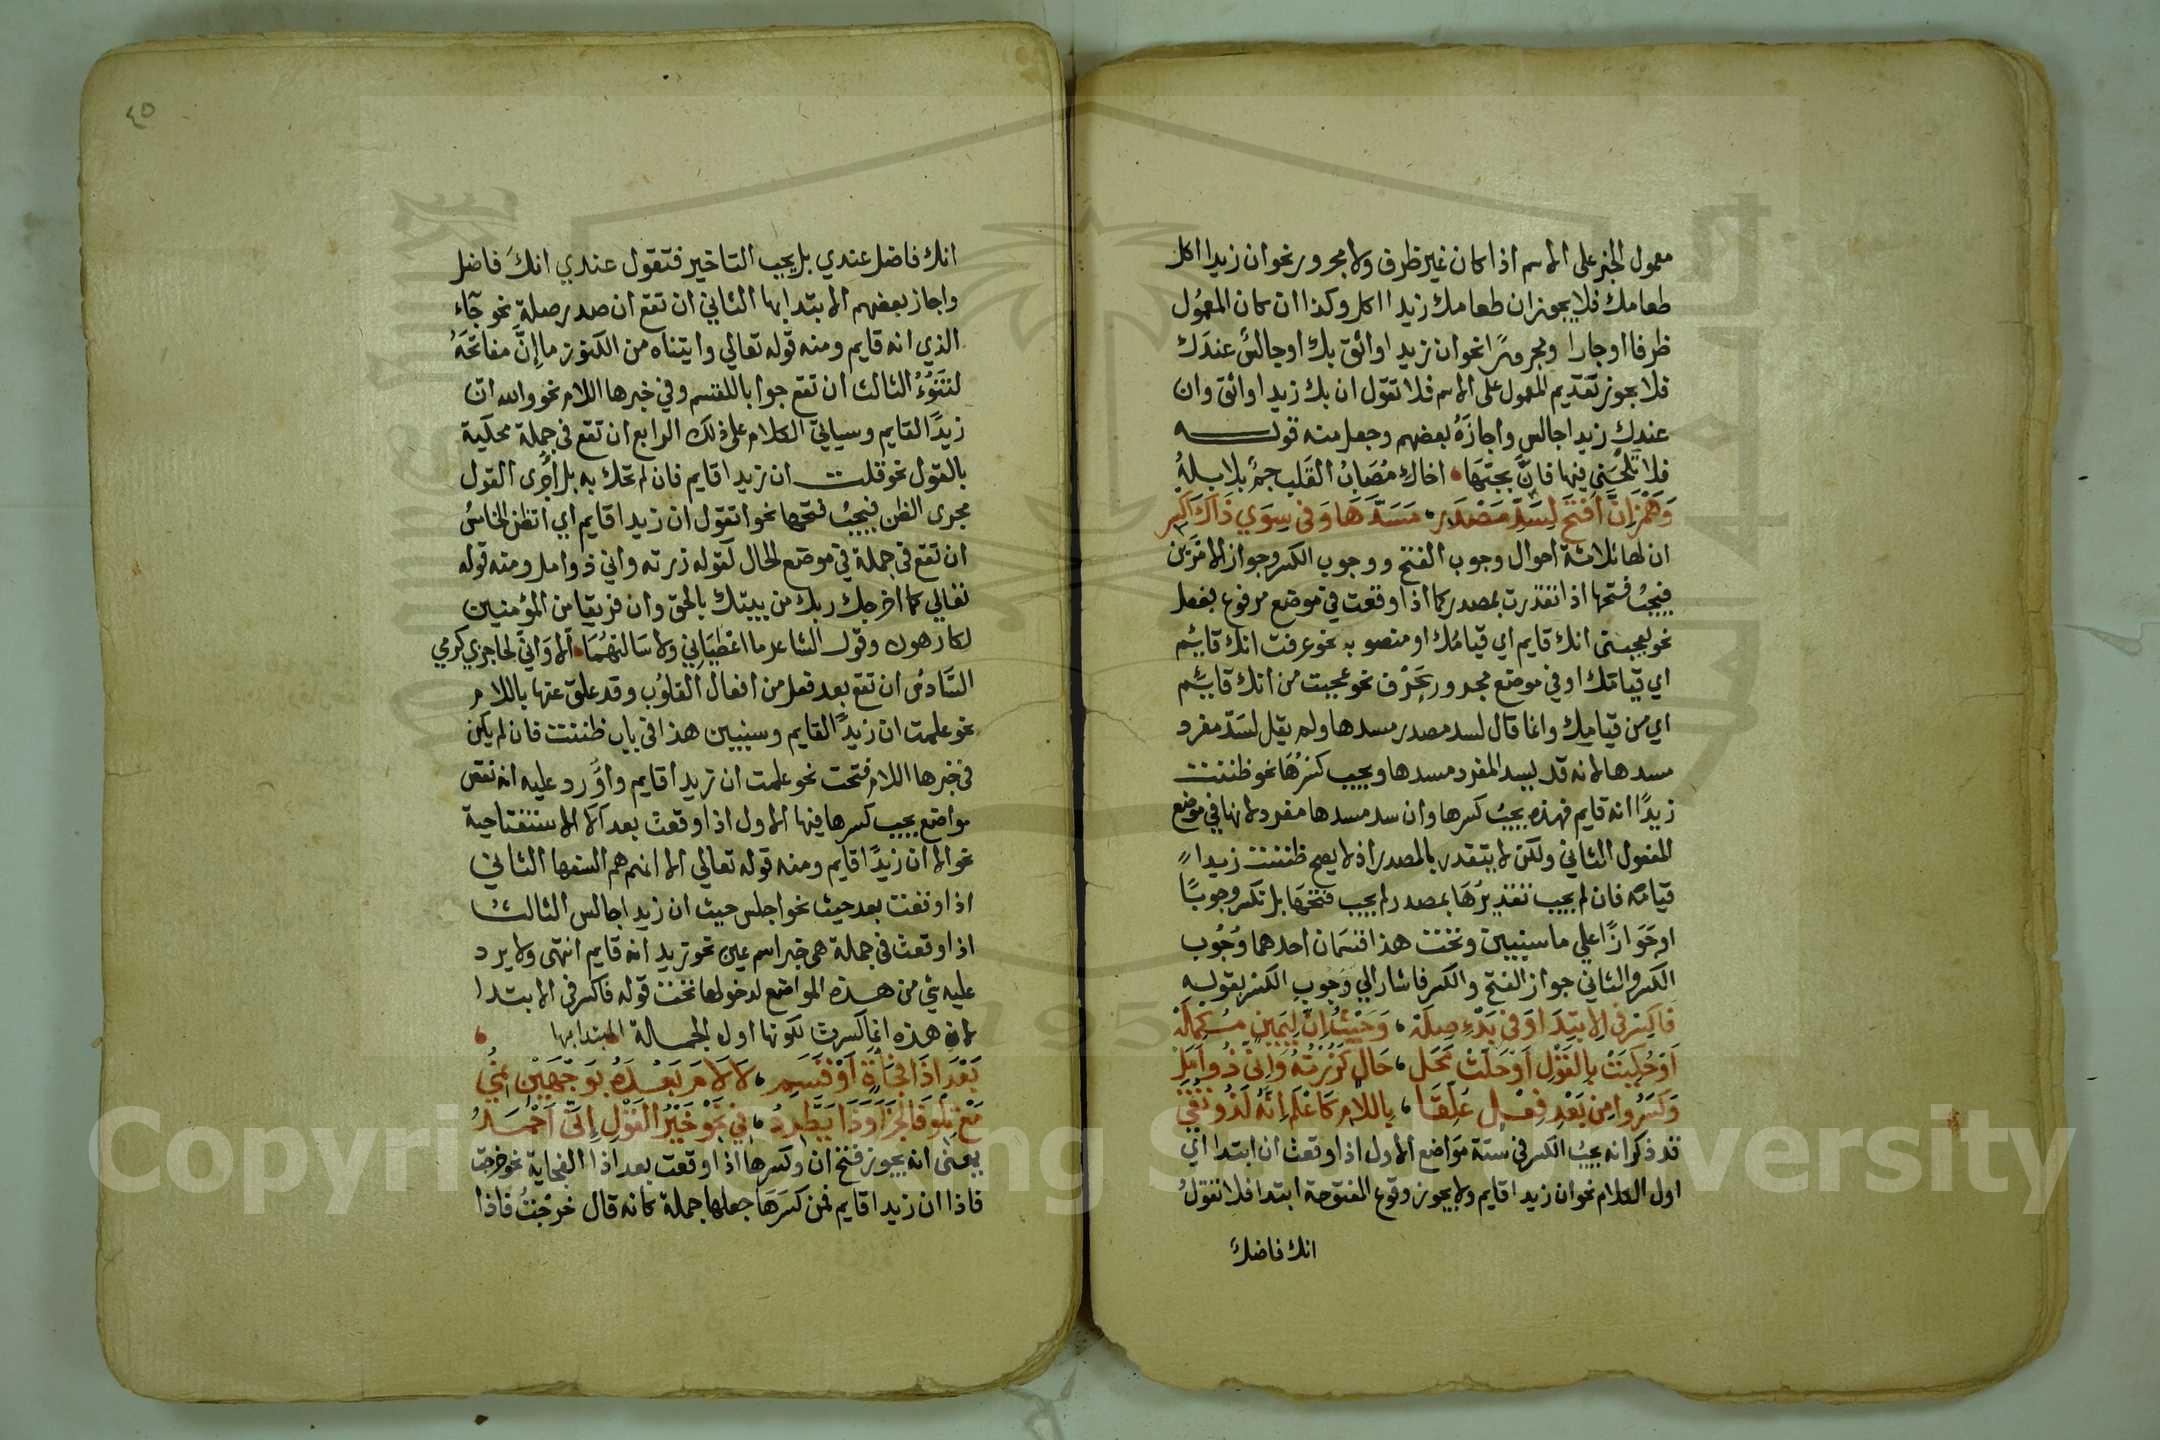 معمول الخبر على الاسم اذا كان غير ظرف ولا مجرور نحو ان زيدا اكل
طعامك فلا يجوز ان طعامك زيدا اكل وكذا ان كان المعمُول
ظرفا او جارا ومجرورًا نحو ان زيدا واثق بك او جالسٌ عندَك
فلا يجوز تقديم المعمول على الاسم فلا تقول ان بك زيدا واثق وان
عندك زيدا جالس واجازَهُ بعضهم وجعل منه قوله
فلا تَلحَني فيها فانَّ بحبّهَا اخاك مُصَابُ القَلب جمٌّ بلابلهُ
وَهَمْزَ اِنَّ اَفتَح لِسَدِّ مَصْدَرِ، مَسَدَّهَا وَفي سِوَي ذَاكَ اكْسِر
ان لها ثلاثة احوال وجوب الفتح ووجوب الكسر وجواز الامرَين
فيجبُ فتحها اذا تقدرت بمصدر كما اذا وقعت في موضع مرفوع بفعل
نحو يعجبني انك قايم اي قيامُك او منصوبه نحو عرفت انك قايم
اي قيامَك او في موضع مجرور بحَرْف نحو عجبت من انك قايم
اي من قيامِك وانما قال لسد مصدر مسدها ولم يقل لسَدّ مفرد
مسدها لانه قد يسد المفرد مسدها ويجب كسْرُهَا نحو ظننت
زيدًا انه قايم فهذه يجبُ كسرها وان سد مسدها مفرد لانها في موضع
المفعول الثاني ولكن لا يتقدر بالمصدر اذ لا يصح ظننت زيداً
قيامَه فان لم يجب تقديرُهَا بمصدر لم يجب فتحُهَا بل تكسر وجوبًا
او جَوَازًا علي ما سنبيين وتحت هذا قسمَان احدهما وُجُوب
الكسر والثاني جواز الفتح والكسر فاشار الي وَجُوب الكسْر بقوله
فَاكسِرْ في الاِبتِدَا وَفي بَدْءِ صِلَهْ، وَحَيْثُ اِنَّ لِيَمِينٍ مُكْمِلَهْ
اَوْ حُكِيَتْ بِالقَوْلِ اَوْ حَلَّتْ مَحَلْ، حَالٍ كَزُرْتُهُ وَاِنّي ذُو اَمَلْ
وَكَسَرُوا مِنْ بَعْدِ فِعْلٍ عُلِّقَا، بِاللاَّمِ كَاعْلَم اِنَّهُ لَذُو تُقَى
قد ذكر انه يجبُ الكسر في ستة مَوَاضع الاول اذا وقعت ان ابتدا اي
اول الكلام نحو ان زيدا قايم ولا يجوز وقوع المفتوحة ابتدا فلا تقولُ
انك فاضل
٤٥
انك فاضل عندي بل يجب التاخير فتقول عندي انكَ فاضل
واجاز بعضهم الابتدا بها الثاني ان تقع ان صدر صلة نحو جَآء
الذي انه قايم ومنه قوله تعالي واتيناه من الكنوز ما إنَّ مفاتحَهُ
لتنَوُءُ الثالث ان تقع جوابا للقسم وفي خبرها اللام نحو والله ان
زيدًا لقايم وسياتي الكلام على ذلك الرابع ان تقع في جملة محكية
بالقول نحو قلت ان زيدا قايم فان لم تحك به بل اُجْرى القول
مجرى الظن فيجبُ فتحها نحو اتقول ان زيدا قايم اي اتظن الخامسُ
ان تقع في جملة في موضع الحال كقوله زرته واني ذو امل ومنه قوله
تعالي كما اخرجك ربك من بيتك بالحق وان فريقا من المؤمنين
لكارهون وقول الشاعر ما اعْطَيَانِي ولا سَالتهُمَا الا وَانّي لحاجزي كرمي
السَّادسُ ان تقع بعد فعل من افعال القلوُب وقد علق عنها باللام
نحو علمت ان زيدًا لقايم وسنبيين هذا في باب ظننت فان لم يكن
في خبرها اللام فتحت نحو علمت ان زيدا قايم واُورد عليه انه نقص
مواضع يجب كسرها فيها الاول اذا وقعت بعد اَلا الاستفتاحية
نحو الا ان زيدًا قايم ومنه قوله تعالي الا انهم هم السفها الثاني
اذا وقعت بعد حيث نحو اجلس حيث ان زيدا جالس الثالث
اذا وقعت في جملة هي خبر اسم عين نحو زيد انه قايم انتهى ولا يرد
عليه شي من هذه المواضع لدخولها تحت قوله فاكسر في الابتدا
لان هذه انما كسرت لكونها اول الجمالة المبتدا بها
بَعْدَ اِذَا فُجَاءَةٍ اَوْ قَسَمِ، لاَ لاَمَ بَعْدَهُ بِوَجْهَيْنِ نُمِي
مَعْ تِلْوِ فَا الجَزَا وَذَا يَطَّرِدُ، في نَحْوِ خَيْرُ القَوْلِ اِنّي اَحْمَدُ
يعنى انه يجوز فتح ان وكسرها اذا وقعت بعد اذا الفجاية نحو خرجت
فاذا ان زيدا قايم فمن كسَرَهَا جعلها جملة كانه قال خرَجْتُ فاذا